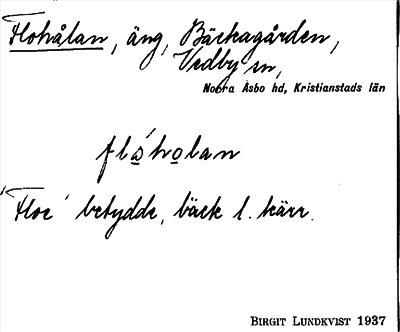 Flohålan, äng, Bäckagården,
Vedby sn,
Norra Åsbo hd, Kristianstads län
flå´hola​n
'Floe' betydde, bäck l. kärr.
BIRGIT LUNDKVIST 1937